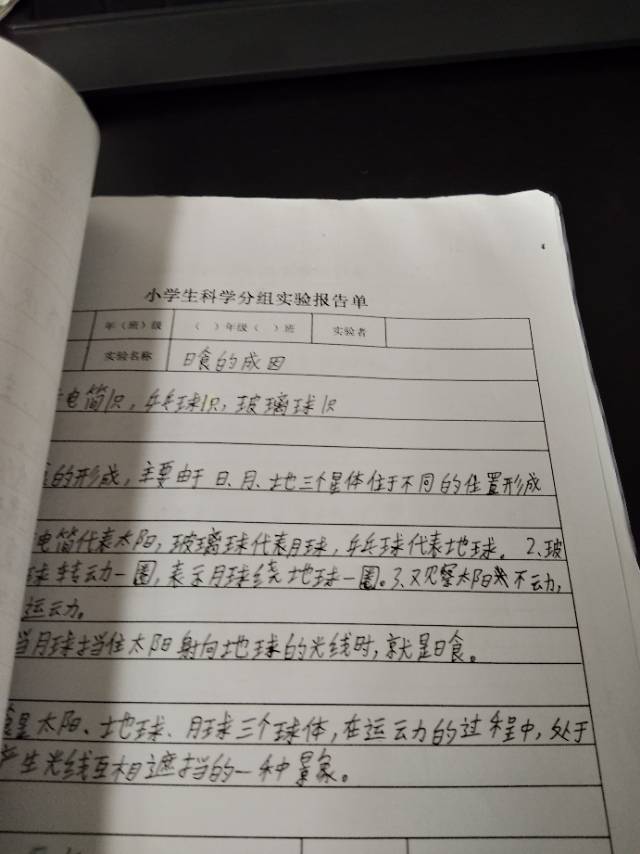 小学生科学分组实验报告单
年（班）级 （ ）年级（ ）班 实验者
实验名称 日食的成因
电筒1只，乒乓球1只，玻璃球1只
的形成，主要由于日、月、地三个星体位于不同的位置形成
电筒代表太阳，玻璃球代表月球，乒乓球代表地球。 2、玻
球转动一圈，表示月球绕地球一圈。3、观察太阳 不动，
运动。
当月球挡住太阳射向地球的光线时，就是日食。
是太阳、地球、月球三个球体，在运动的过程中，处于
产生光线互相遮挡的一种景象。